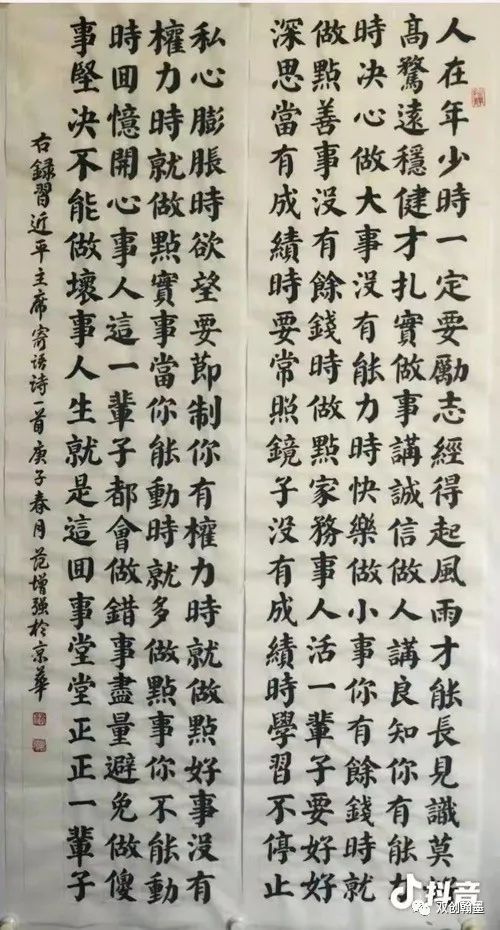 人在年少時一定要勵志經得起風雨才能長見識莫
髙騖遠穩健才扎實做事講誠信做人講良知你有能
時决心做大事没有能力時快樂做小事你有餘錢時就
做點善事没有餘錢時做點家務事人活一輩子要好好
深思當有成績時要常照鏡子没有成績時學習不停止
私心膨脹時欲望要節制你有權力時就做點好事没有
權力時就做點實事當你能動時就多做點事你不能動
時囬憶開心事人這一輩子都會做錯事盡量避免做傻
事堅决不能做壞事人生就是這囬事堂堂正正一輩子
右録習近平主席寄语詩一首庚子春月范增强於京華
抖音
双创翰墨